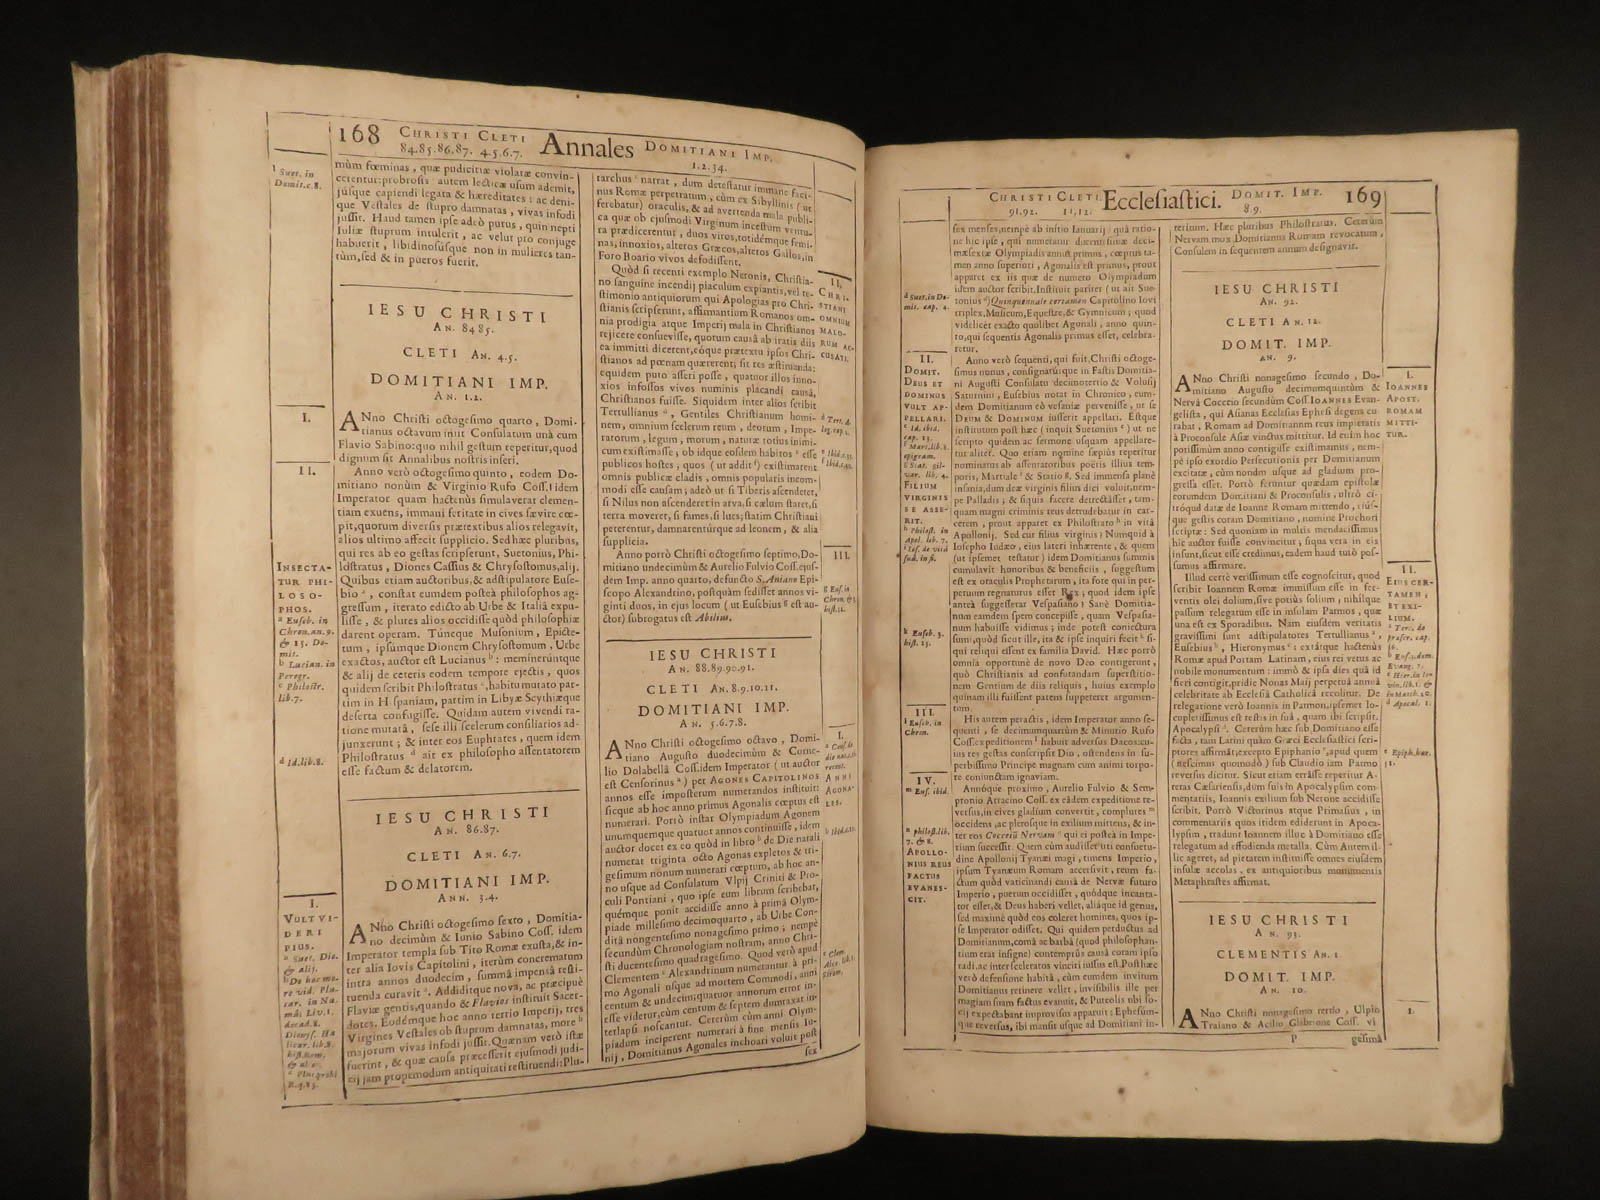 168 CHRISTI CLETI Annales DOMITIANI IMP.
84.85.86.87. 4.5.6.7. 1.2.34.
mùm fœminas, quæ pudicitiæ violatæ convin-
cerentur: probrosis autem lecticæ usum ademit,
júsque capiendi legata & hæreditates: ac deni-
que Vestales de stupro damnatas, vivas infodi
jussit. Haud tamen ipse adeò putus, quin nepti
Iuliæ stuprum intulerit, ac velut pro conjuge
habuerit, libidinosúsque non in mulieres tan-
tùm, sed & in pueros fuerit.
IESU CHRISTI
AN. 84 85.
CLETI AN. 4.5.
DOMITIANI IMP.
AN. 1.2.
ANno Christi octogesimo quarto, Domi-
tianus octavum iniit Consulatum unà cum
Flavio Sabino: quo nihil gestum reperitur, quod
dignum sit Annalibus nostris inseri.
Anno verò octogesimo quinto, eodem Do-
mitiano nonùm & Virginio Rufo Coss. idem
Imperator quam hactenùs simulaverat clemen-
tiam exuens, immani feritate in cives sævire cœ-
pit, quorum diversis prætextibus alios relegavit,
alios ultimo affecit supplicio. Sed hæc pluribus,
qui res ab eo gestas scripserunt, Suetonius, Phi-
lostratus, Diones Cassius & Chrysostomus, alij.
Quibus etiam auctoribus, & adstipulatore Euse-
bio a, constat eumdem posteà philosophos ag-
gressum, iterato edicto ab Urbe & Italiâ expu-
lisse, & plures alios occidisse quòd philosophiæ
darent operam. Túncque Musonium, Epicte-
tum, ipsúmque Dionem Chrysostomum, Urbe
exactos, auctor est Lucianus b: memineruntque
& alij de ceteris eodem tempore ejectis, quos
quidem scribit Philostratus c, habitu mutato par-
tim in Hispaniam, partim in Libyæ Scythiæque
deserta confugisse. Quidam autem vivendi ra-
tione mutatâ, sese illi scelerum consiliarios ad-
junxerunt; & inter eos Euphrates, quem idem
Philostratus d ait ex philosopho assentatorem
esse factum & delatorem.
IESU CHRISTI
AN. 86.87.
CLETI AN. 6.7.
DOMITIANI IMP.
ANN. 3.4.
ANno Christi octogesimo sexto, Domitia-
no decimùm & Iunio Sabino Coss. idem
Imperator templa sub Tito Romæ exusta, & in-
ter alia Iovis Capitolini, iterùm concrematum
intra annos duodecim, summâ impensâ resti-
tuenda curavit a. Addiditque nova, ac præcipuè
Flaviæ gentis, quando & Flavios instituit Sacer-
dotes. Eodémque hoc anno tertio Imperij, tres
Virgines Vestales ob stuprum damnatas, more b
majorum vivas infodi jussit. Quænam verò istæ
fuerint, & quæ causa præcesserit ejusmodi judi-
cij jam propemodum antiquitati restituendi: Plu-
tarchus c narrat, dum detestatur immane faci-
nus Romæ perpetratum, cùm ex Sibyllinis (ut
ferebatur) oraculis, & ad avertenda mala publi-
ca quæ ob ejusmodi Virginum incestum ventu-
ra prædicerentur, duos viros, totidémque femi-
nas, innoxios, alteros Græcos, alteros Gallos, in
Foro Boario vivos defodissent.
Quòd si recenti exemplo Neronis, Christia-
no sanguine incendij piaculum expiantis, vel te-
stimonio antiquiorum qui Apologias pro Chri-
stianis scripserunt, affirmantium Romanos om-
nia prodigia atque Imperij mala in Christianos
rejicere consuevisse, quotum causâ ab iratis diis
ea immitti dicerent, eóque prætextu ipsos Chri-
stianos ad pœnam quærerent; sit res æstimanda:
equidem puto asseri posse, quatuor illos inno-
xios infossos vivos numinis placandi causâ,
Christianos fuisse. Siquidem inter alios scribit
Tertullianus a, Gentiles Christianum homi-
nem, omnium scelerum reum, deorum, Impe-
ratorum, legum, morum, naturæ totius inimi-
cum existimasse; ob idque eosdem habitos e esse
publicos hostes, quos (ut addit f) existimarent
omnis publicæ cladis, omnis popularis incom-
modi esse causam; adeò ut si Tiberis ascenderet,
si Nilus non ascenderet in arva, si cælum staret, si
terra moveret, si fames, si lues; statim Christiani
peterentur, damnarentúrque ad leonem, & alia
supplicia.
Anno porrò Christi octogesimo septimo, Do-
mitiano undecimùm & Aurelio Fulvio Coss. ejus-
dem Imp. anno quarto, defuncto S. Aniano Epi-
scopo Alexandrino, postquàm sedisset annos vi-
ginti duos, in ejus locum (ut Eusebius g est au-
ctor) subrogatus est Abilius.
IESU CHRISTI
AN. 88.89.90.91.
CLETI AN. 8.9.10.11.
DOMITIANI IMP.
AN. 5.6.7.8.
ANno Christi octogesimo octavo, Domi-
tiano Augusto duodecimùm & Corne-
lio Dolabellâ Coss. idem Imperator (ut auctor
est Censorinus a) per AGONES CAPITOLINOS
annos esse imposterum numerandos instituit:
sicque ab hoc anno primus Agonalis cœptus est
numerari. Porrò instar Olympiadum Agonem
unumquemque quatuor annos continuisse, idem
auctor docet ex eo quòd in libro b de Die natali
numerat triginta octo Agonas expletos & tri-
gesimum nonum numerari cœptum, ab hoc an-
no usque ad Consulatum Vlpij Criniti & Pro-
culi Pontiani, quo ipse eum librum scribebat,
quémque ponit accidisse anno à primâ Olym-
piade millesimo decimoquarto, ab Urbe Con-
ditâ nongentesimo nonagesimo primo; nempè
secundùm Chronologiam nostram, anno Chri-
sti ducentesimo quadragesimo. Quòd verò apud
Clementem c Alexandrinum numerantur à pri-
mo Agonali usque ad mortem Commodi, anni
centum & undecim; quatuor annorum error in-
esse videtur, cùm centum & septem dumtaxat in-
terlapsi noscantur. Ceterùm cùm anni Olym-
piadum inciperent numerari à fine mensis Iu-
nij, Domitianus Agonales inchoari voluit post
sex
l Suet. in
Domit. c. 8.
I.
II.
INSECTA-
TUR PHI-
LOSO-
PHOS.
a Euseb. in
Chron. an. 9.
& 15. Do-
mit.
b Lucian. in
Peregr.
c Philostr.
lib. 7.
d Id. lib. 8.
I.
VULT VI-
DERI
PIUS.
a Suet. Dio.
& alij.
II.
CHRI-
STIANI
OMNIUM
MALO-
RUM AC-
CUSATI.
e Ibid. c. 35.
III.
g Euseb. in
Chron. & 3.
hist. 12.
I.
a Cens. de
ANNI
AGONA-
LES.
CHRISTI CLETI. Ecclesiastici. DOMIT. IMP. 169
91.92. 11.12. 8.9.
sex menses, nempè ab initio Ianuarij: quâ ratio-
ne hic ipse, qui numeratur ducentesimæ deci-
mæsextæ Olympiadis annus primus, cœptus ta-
men anno superiori, Agonalis est primus, prout
apparet ex iis quæ de numero Olympiadum
idem auctor scribit. Instituit pariter (ut ait Sue-
tonius d) Quinquennale certamen Capitolino Iovi
triplex, Musicum, Equestre, & Gymnicum; quod
videlicèt exacto quolibet Agonali, anno quin-
to, qui sequentis Agonalis primus esset, celebra-
retur.
Anno verò sequenti, qui fuit, Christi octoge-
simus nonus, consignatúrque in Fastis Domitia-
ni Augusti Consulatu decimotertio & Volusij
Saturnini, Eusebius notat in Chronico, eum-
dem Domitianum eò vesaniæ pervenisse, ut se
DEUM & DOMINUM jusserit appellari. Estque
institutum post hæc (inquit Suetonius e) ut ne
scripto quidem ac sermone usquam appellare-
tur aliter. Quo etiam nomine sæpiùs reperitur
nominatus ab assentatoribus poëtis illius tem-
poris, Martiale f & Statio g. Sed immensa planè
insania, dum deæ virginis filius dici voluit, nem-
pe Palladis; & siquis facere detrectásset, tam-
quam magni criminis reus detrudebatur in car-
cerem, prout apparet ex Philostrato h in vitâ
Apollonij. Sed cur filius virginis? Numquid à
Iosepho Iudæo, ejus lateri inhærente, & quem
(ut ipsemet testatur) idem Domitianus summis
cumulavit honoribus & beneficiis, suggestum
est ex oraculis Prophetarum, ita fore qui in per-
petuum regnaturus esset Rex; quod idem ipse
anteà suggesserat Vespasiano? Sanè Domitia-
num eamdem spem concepisse, quam Vespasia-
num habuisse vidimus; inde potest conjectura
sumi, quòd sicut ille, ita & ipse inquiri fecit k si-
qui reliqui essent ex familiâ David. Hæc porrò
omnia opportunè de novo Deo contigerunt,
quò Christianis ad confutandam superstitio-
nem Gentilium de diis reliquis, hujus exemplo
quinam illi fuissent patens suppeteret argumen-
tum.
His autem peractis, idem Imperator anno se-
quenti, se decimumquartùm & Minutio Rufo
Coss. expeditionem l habuit adversùs Dacos: cu-
jus res gestas conscripsit Dio, ostendens in su-
perbissimo Principe magnam cum animi torpo-
re conjunctam ignaviam.
Annóque proximo, Aurelio Fulvio & Sem-
pronio Atracino Coss. ex eâdem expeditione re-
versus, in cives gladium convertit, complures m
occidens, ac plerosque in exilium mittens, & in-
ter eos Cocceiū Nervam n qui ei posteà in Impe-
rium successit. Quem cùm audisset uti consuetu-
dine Apollonij Tyanæi magi, timens Imperio,
ipsum Tyanæum Romam accersivit, reum fa-
ctum quòd vaticinandi causâ de Nervæ futuro
Imperio, puerum occidisset, quódque incanta-
tor esset, & Deus haberi vellet, aliáque id genus,
sed maximè quòd eos coleret homines, quos ip-
se Imperator odisset. Qui quidem perductus ad
Domitianum, comâ ac barbâ (quod philosophan-
tium erat insigne) contemptûs causâ coram ipso
rasâ, ac inter sceleratos vinciri jussus est. Post hæc
verò defensione habitâ, cùm eumdem invitum
Domitianus retinere vellet, invisibilis ille per
magiam suam factus evanuit, & Puteolis ubi so-
cij expectabant improvisus apparuit: Ephesúm-
que reversus, ibi mansit usque ad Domitiani in-
teritum. Hæc pluribus Philostratus. Ceterùm
Nervam mox Domitianus Romam revocatum,
Consulem in sequentem annum designavit.
IESU CHRISTI
AN. 92.
CLETI AN. 12.
DOMIT. IMP.
AN. 9.
ANno Christi nonagesimo secundo, Do-
mitiano Augusto decimumquintùm &
Nervâ Cocceio secundùm Coss. IOANNES Evan-
gelista, qui Asianas Ecclesias Ephesi degens cu-
rabat, Romam ad Domitianum reus impietatis
à Proconsule Asiæ vinctus mittitur. Id enim hoc
potissimùm anno contigisse existimamus, nem-
pè ipso exordio Persecutionis per Domitianum
excitatæ, cùm nondum usque ad gladium pro-
gressa esset. Porrò feruntur quædam epistolæ
eorumdem Domitiani & Proconsulis, ultrò ci-
tróque datæ de Ioanne Romam mittendo, ejús-
que gestis coram Domitiano, nomine Prochori
scriptæ: Sed quoniam in multis mendacissimus
hic auctor fuisse convincitur; siqua vera in eis
insunt, sicut esse credimus, eadem haud tutò pos-
sumus affirmare.
Illud certè verissimum esse cognoscitur, quod
scribit Ioannem Romæ immissum esse in fer-
ventis olei dolium, sive potiùs solium, nihilque
passum relegatum esse in insulam Patmos, quæ
una est ex Sporadibus. Nam ejusdem veritatis
gravissimi sunt adstipulatores Tertullianus a,
Eusebius b, Hieronymus c: extátque hactenùs
Romæ apud Portam Latinam, ejus rei vetus ac
nobile monumentum: immò & ipsa dies quâ id
fieri contigit, pridiè Nonas Maij perpetuâ annuâ
celebritate ab Ecclesiâ Catholicâ recolitur. De
relegatione verò Ioannis in Patmon, ipsemet lo-
cupletissimus est testis in suâ, quam ibi scripsit,
Apocalypsi d. Ceterùm hæc sub Domitiano esse
facta, tam Latini quàm Græci Ecclesiastici scri-
ptores affirmāt; excepto Epiphanio e, apud quem
(nescimus quomodò) sub Claudio jam Patmo
reversus dicitur. Sicut etiam errâsse reperitur A-
retas Cæsariensis, dum suis in Apocalypsim com-
mentariis, Ioannis exilium sub Nerone accidisse
scribit. Porrò Victorinus atque Primasius, in
commentariis quos itidem ediderunt in Apoca-
lypsim, tradunt Ioannem illuc à Domitiano esse
relegatum ad effodienda metalla. Cùm Autem il-
lîc ageret, ad pietatem instituisse omnes ejusdem
insulæ accolas, ex antiquioribus monumentis
Metaphrastes affirmat.
IESU CHRISTI
AN. 93.
CLEMENTIS AN. 1
DOMIT. IMP.
AN. 10.
ANno Christi nonagesimo tertio, Ulpio
Traiano & Acilio Glabrione Coss. vi
P gesimâ
d Suet. in Do-
mit. cap. 4.
II.
DOMIT.
DEUS ET
DOMINUS
VULT AP-
PELLARI.
e Id. ibid.
cap. 13.
FILIUM
VIRGINIS
SE ASSE-
RIT.
h Philost. in
Apol. lib. 7.
k Euseb. 3.
hist. 15.
III.
l Euseb. in
Chron.
IV.
m Eus. ibid.
n philost. lib.
7. & 8.
APOLLO-
NIUS REUS
FACTUS
EVANES-
CIT.
I.
IOANNES
APOST.
ROMAM
MITTI-
TUR.
II.
EIUS CER-
TAMEN,
ET EXI-
LIUM.
a Tert. de
præscr. cap.
36.
d Apocal. 1.
e Epiph. hær.
51.
I.